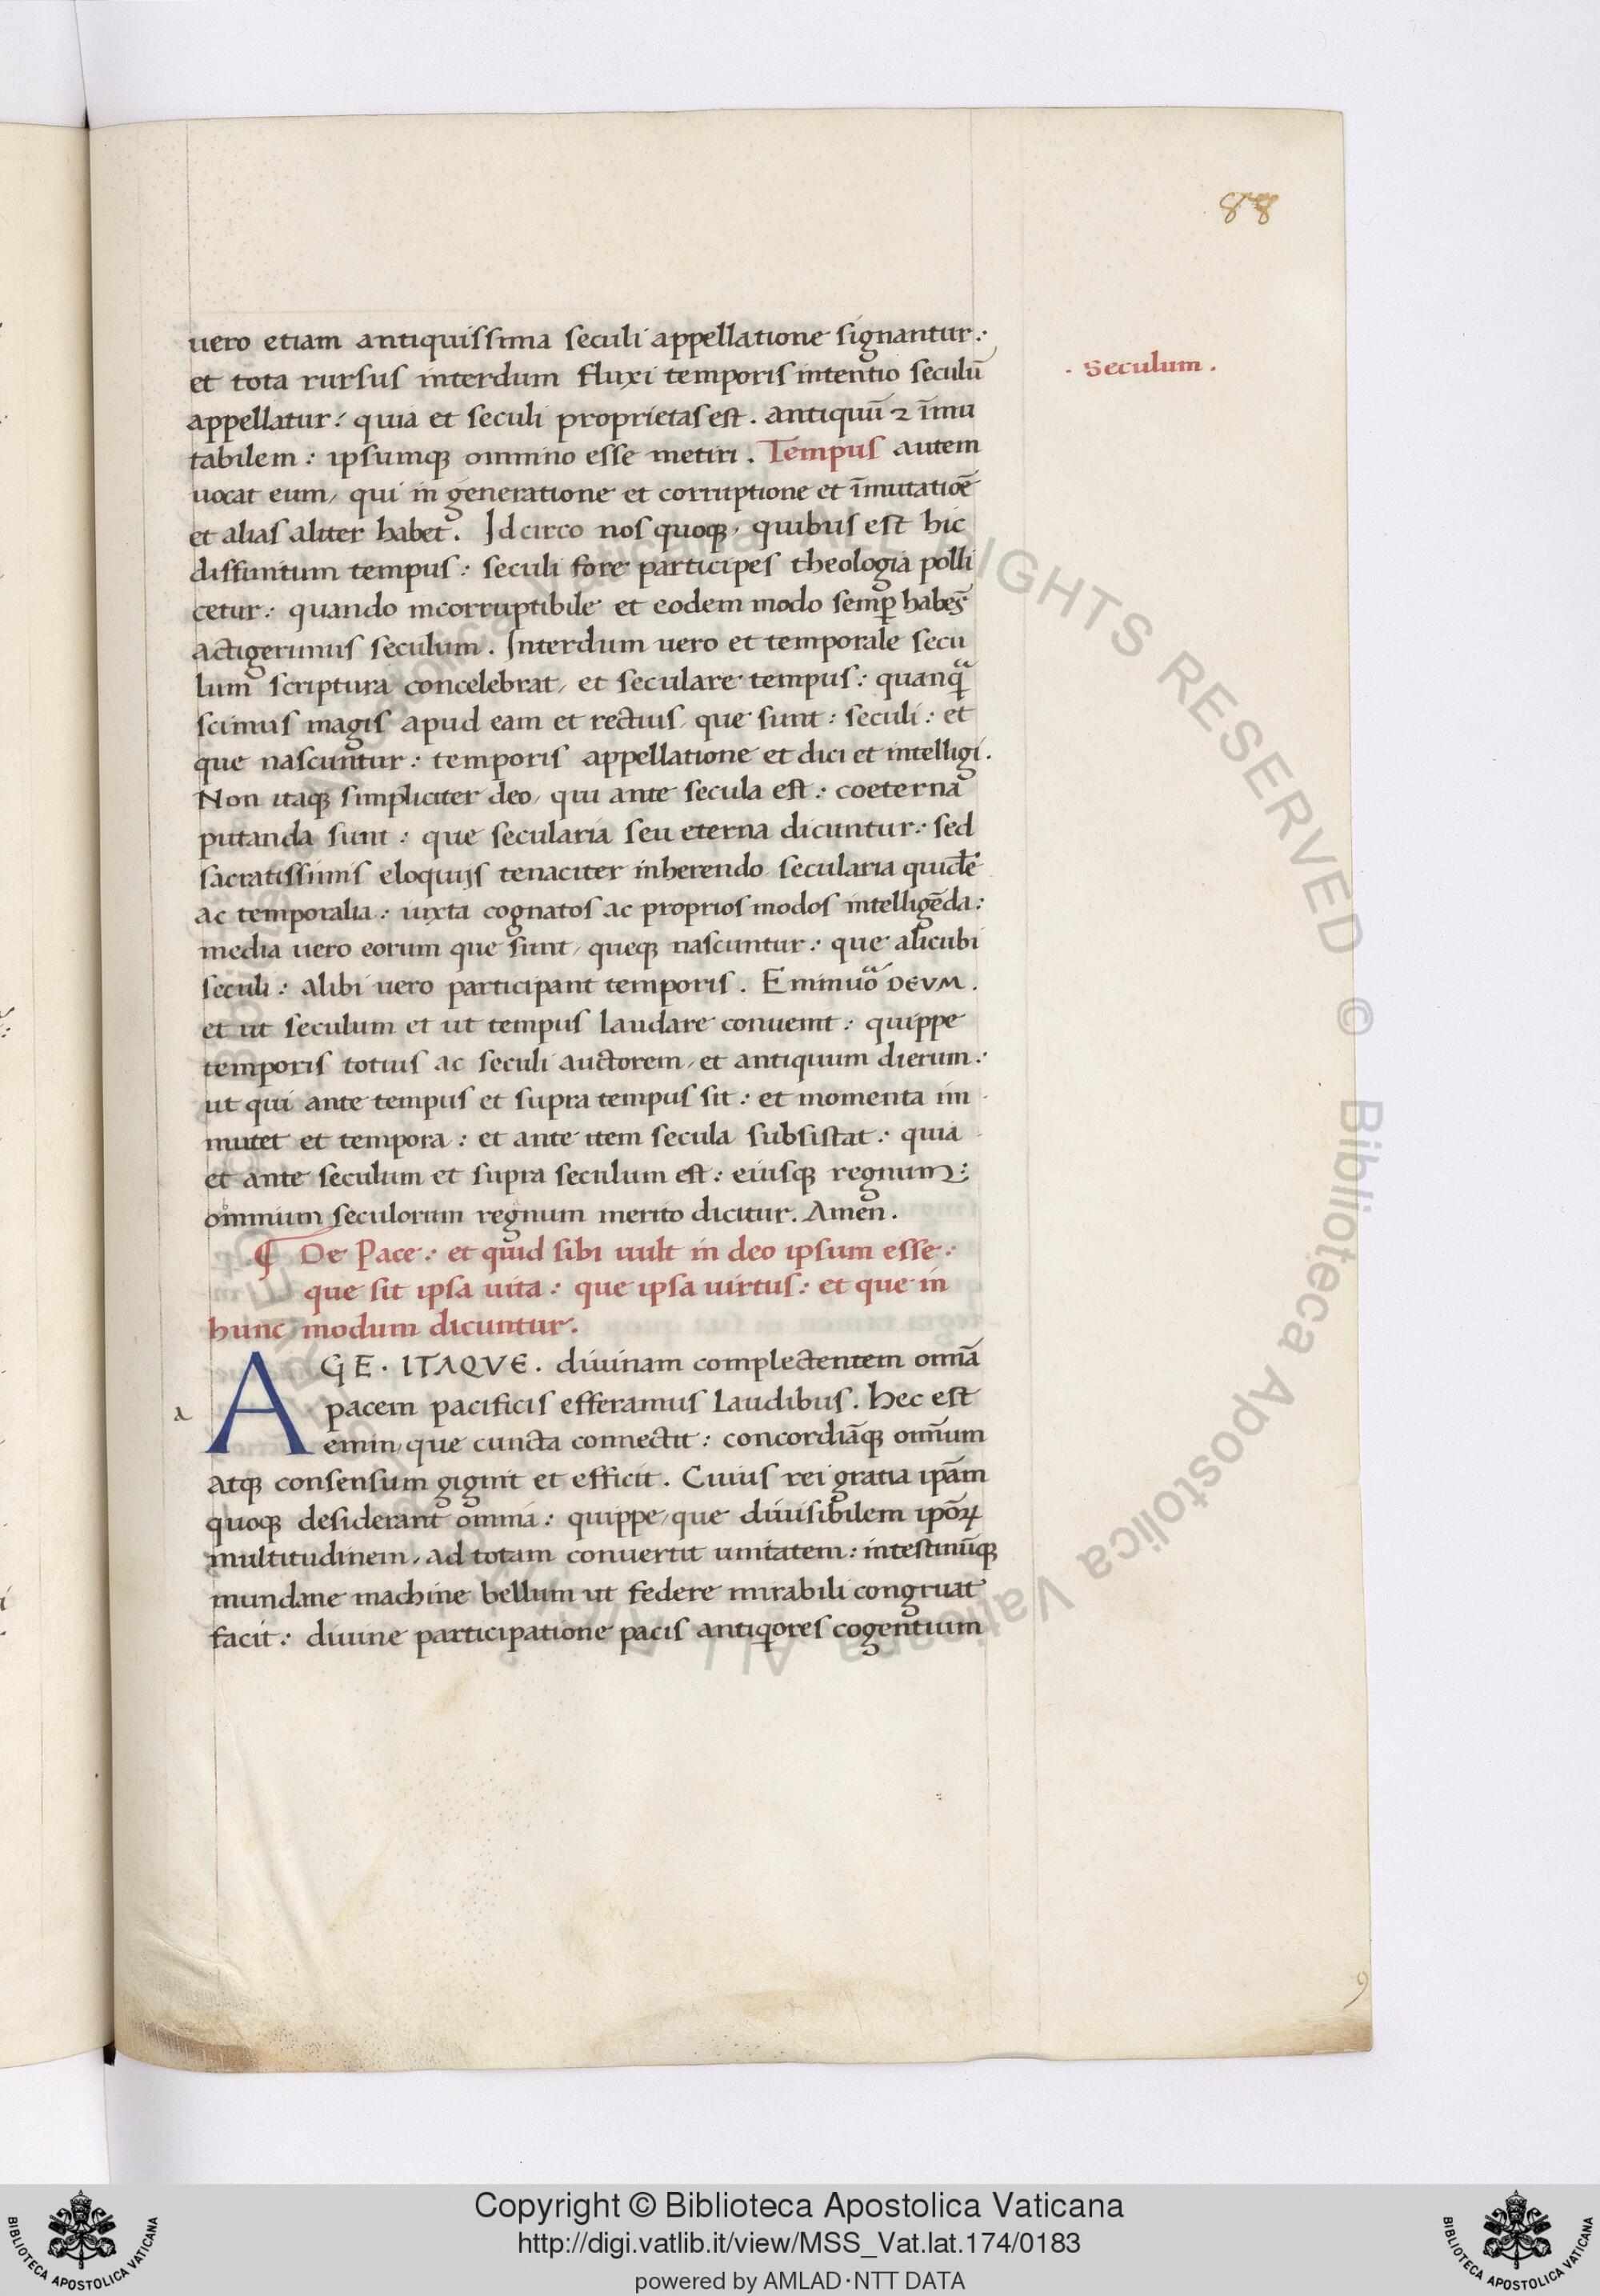 88
uero etiam antiquissima seculi appellatione signantur:
et tota rursus interdum fluxi temporis intentio seculū
· Seculum .
appellatur: quia et seculi proprietas est . antiquū ⁊ īmu
tabilem: ipsumqꝫ omnino esse metiri . Tempus autem
uocat eum, qui in generatione et corruptione et īmutatiōe
et alias aliter habet . Idcirco nos quoqꝫ, quibus est hic
diffinitum tempus: seculi fore participes theologia polli
cetur: quando incorruptibile et eodem modo semꝑ habēs
actigerimus seculum . Interdum uero et temporale secu
lum scriptura concelebrat, et seculare tempus: quanqᷓ
scimus magis apud eam et rectius, que sunt: seculi: et
que nascuntur: temporis appellatione et dici et intelligi.
Non itaqꝫ simpliciter deo, qui ante secula est: coeterna
putanda sunt: que secularia seu eterna dicuntur: sed
sacratissimis eloquijs tenaciter inherendo secularia quidē
ac temporalia: iuxta cognatos ac proprios modos intelligēda:
media uero eorum que sunt, queqꝫ nascuntur: que alicubi
seculi: alibi uero participant temporis . Eminuo DEVM.
et ut seculum et ut tempus laudare conuenit: quippe
temporis totius ac seculi auctorem, et antiquum dierum:
ut qui ante tempus et supra tempus sit: et momenta im
mutet et tempora: et ante item secula subsistat: quia
et ante seculum et supra seculum est: eiusqꝫ regnum:
omnium seculorum regnum merito dicitur. Amen .
¶ De Pace: et quid sibi uult in deo ipsum esse:
que sit ipsa uita: que ipsa uirtus: et que in
hunc modum dicuntur.
a
AGE · ITAQVE . diuinam complectentem omnā
pacem pacificis efferamus laudibus. Hec est
emin, que cuncta connectit: concordiāqꝫ omnium
atqꝫ consensum gignit et efficit . Cuius rei gratia ipām
quoqꝫ desiderant omnia: quippe, que diuisibilem ipōꝝ
multitudinem, ad totam conuertit unitatem: intestinūqꝫ
mundane machine bellum ut federe mirabili congruat
facit: diuine participatione pacis antiqores cogentium
9
Copyright © Biblioteca Apostolica Vaticana
http://digi.vatlib.it/view/MSS_Vat.lat.174/0183
powered by AMLAD·NTT DATA
BIBLIOTECA APOSTOLICA VATICANA
BIBLIOTECA APOSTOLICA VATICANA